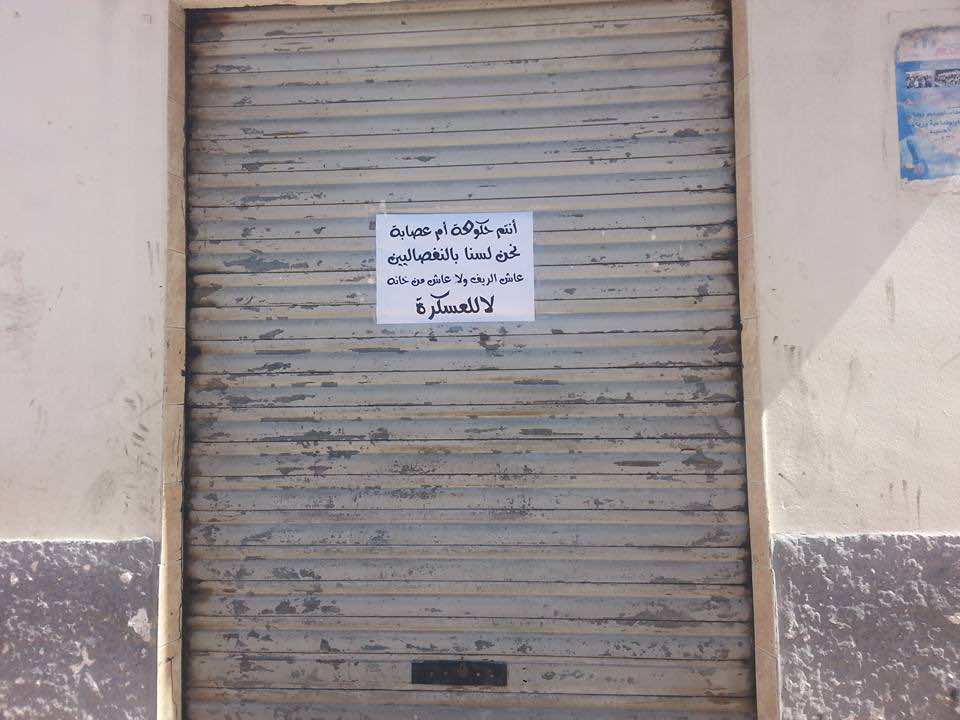 أنتم حكومة أم عصابة
نحن لسنا بالنفصاليين
عاش الريف ولا عاش من خانه
لا للعسكرة